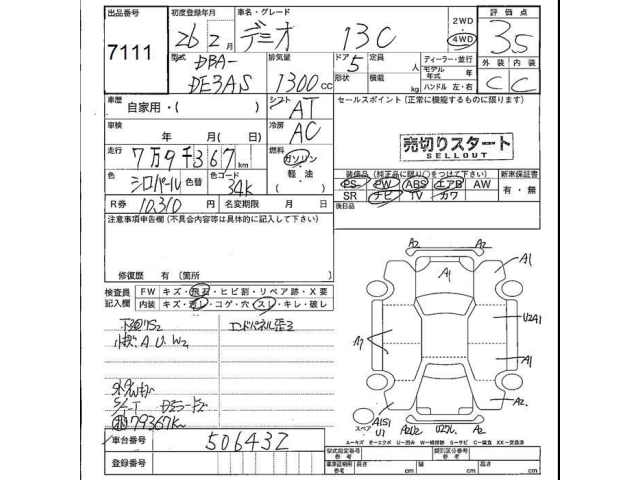 出品番号 初度登録年月 車名・グレード 2WD 評価点
7111 26年2月 デミオ 13C 4WD 3.5
型式 DBA- 排気量 ドア 定員 ディーラー・並行 外装 内装
DE3AS 1300CC 5 人 モデル年式 年 C C
形状 積載 kg ハンドル 左・右
車歴 自家用・( ) シフト AT セールスポイント(正常に機能するものに限ります)
車検 年 月( 日) 冷房 AC 売切りスタート
SELLOUT
走行 7万9千367km 燃料 ガソリン 装備品(純正品に限り○をつけて下さい) 新車保証書
色 シロパール 色替 色コード 34K 軽油 ( ) PS PW ABS エアB AW 有・無
SR ナビ TV カワ
R券 10,310円 名変期限 月 日 後日品
注意事項申告欄(不具合内容等は具体的に記入して下さい)
修復歴 有〔箇所 〕
検査員記入欄 FW キズ・飛石・ヒビ割・リペア跡・X要
内装 キズ・汚レ・コゲ・穴・スレ・キレ・破レ
下回りS2 エンドパネル歪ミ
小キズ A U W2
79367km
A2 A2
A1
A1
U2A1
A1
A2
A1S1
U1
スペア
A2U2
A キズ E エクボ U 凹み W 補修跡 S サビ C 腐食 XX 交換済
車台番号 506432 型式指定番号 参考 類別区分番号 参考
登録番号 車庫証明用 参考 長さ cm 幅 cm 高さ cm